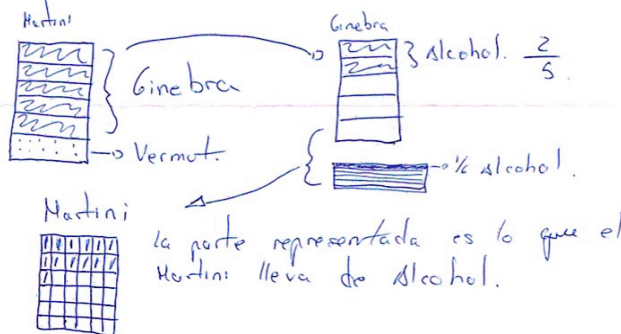 Martini
Ginebra
Ginebra
Alcohol. 2/5.
Vermut.
1/6 Alcohol.
Martini
la parte representada es lo que el
Martini lleva de Alcohol.